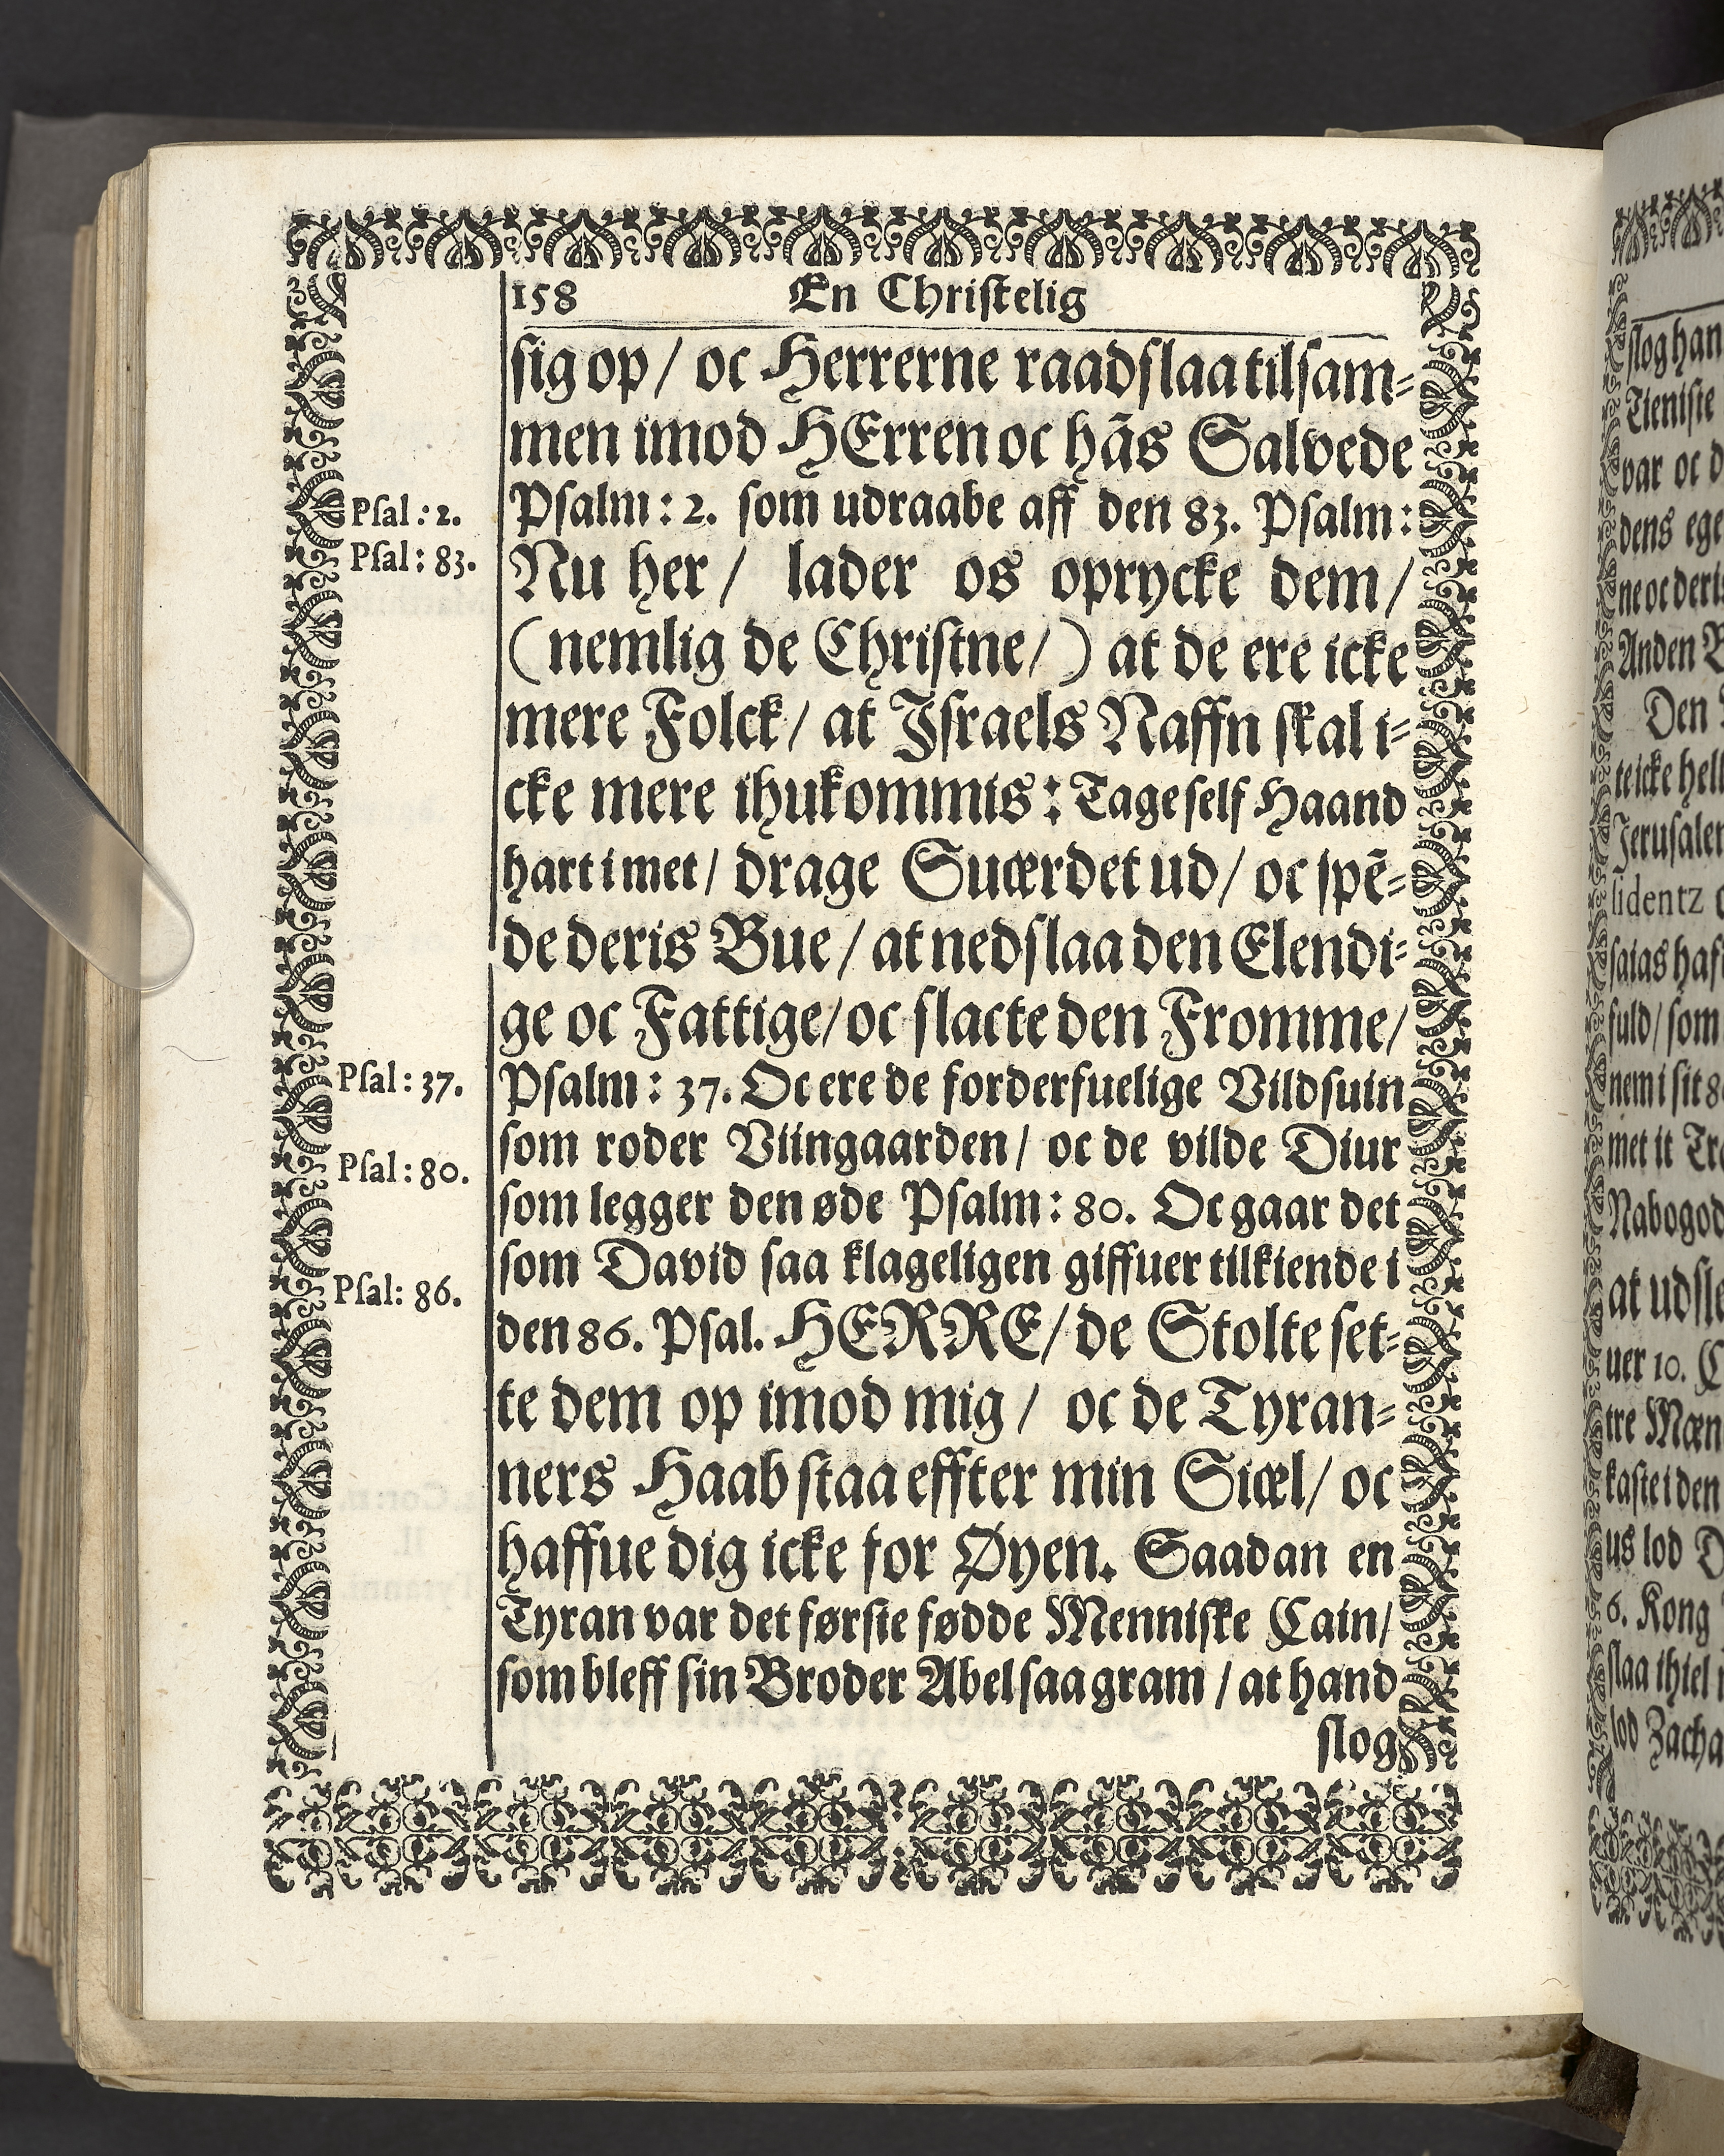 158 En Christelig
sig op / oc Herrerne raadslaa tilsam-
men imod HErren oc hãs Salvede
Psal: 2.
Psalm: 2. som udraabe aff den 83. Psalm:
Psal: 83.
Nu her / lader os oprycke dem /
(nemlig de Christne /) at de ere icke
mere Folck / at Israels Naffn skal i-
cke mere ihukommis: Tage self Haand
hart i met / drage Suærdet ud / oc spẽ-
de deris Bue / at nedslaa den Elendi-
ge oc Fattige / oc slacte den Fromme /
Psal: 37.
Psalm: 37. Oc ere de forderfuelige Vildsuin
som roder Viingaarden / oc de vilde Diur
Psal: 80.
som legger den øde Psalm: 80. Oc gaar det
som David saa klageligen giffuer tilkiende i
Psal: 86.
den 86. Psal. HERRE / de Stolte set-
te dem op imod mig / oc de Tyran-
ners Haab staa effter min Siæl / oc
haffue dig icke for Øyen. Saadan en
Tyran var det første fødde Menniske Cain /
som bleff sin Broder Abel saa gram / at hand
slog
slog han
Tieniste
var oc d
dens ege
ne oc deris
Anden
Den
te icke hell
Jerusalem
sidentz
saias haf
fuld / som
nem i sit 8
met it Tr
Nabogod
at udsle
uer 10. C
tre Mæn
kaste i den
us lod D
6. Kong
slaa ihiel
lod Zacha